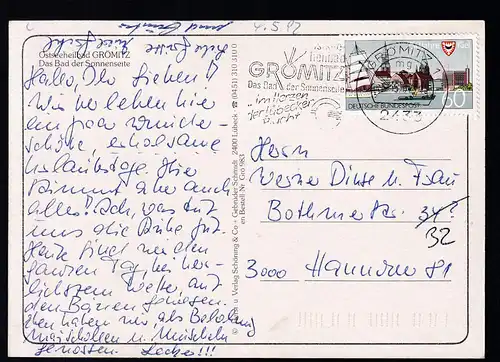 4.5.92
Ostseeheilbad GRÖMITZ
Das Bad der Sonnenseite
Hallo, Ihr Lieben!
Wir verleben hier
ein paar wunder-
schöne, erholsame
Urlaubstage. Hier
stimmt aber auch
alles! Ach, was tut
uns die Ruhe gut.
Heute sind wir den
ganzen Tag, bei herr-
lichstem Wetter, auf
den Beinen gewesen.
haben wir als Belohnung
Maischollen u. Muscheln
genossen. Lecker!!!
und Verlag Schöning & Co · Gebrüder Schmidt · 2400 Lübeck · ☎ (0451) 310 310
Bestell Nr. Grö 983
GRÖMITZ
Das Bad der Sonnenseite
im Herzen
der Lübecker
Bucht
GRÖMITZ
mg
2433
DEUTSCHE BUNDESPOST
60
Herrn
Werner Dinse u. Frau
Bothmerstr. 34?
32
3000 Hannover 81